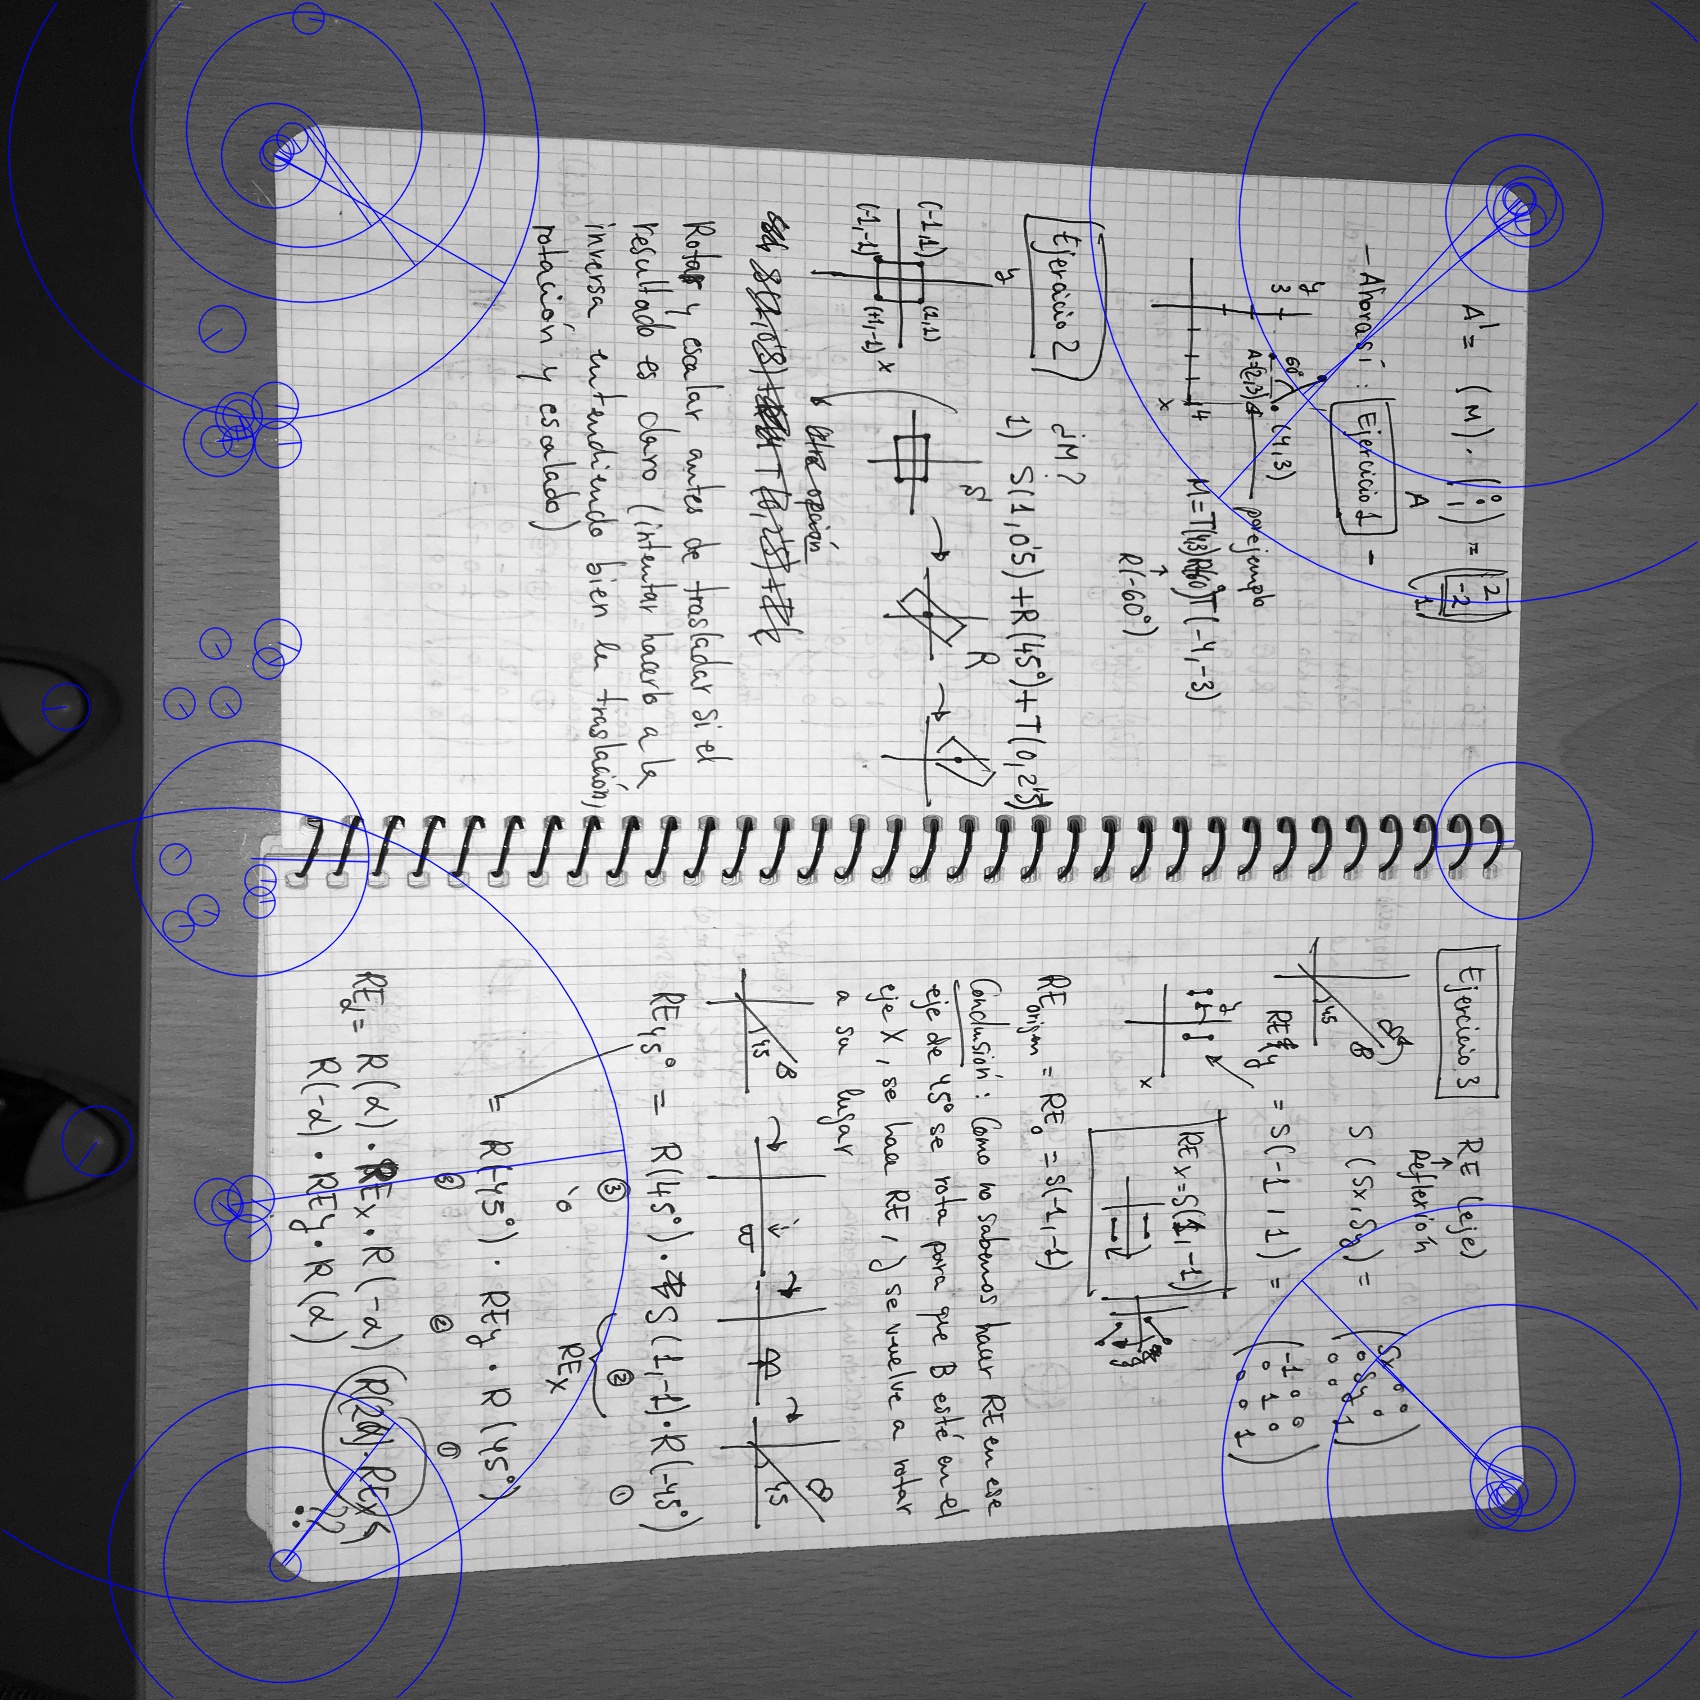 A' = (M) · (0 0 1) = (2 -2 1)
A
- Ahora sí: Ejercicio 1 -
y
3
60°
(4,3)
A=(2,3)
4
x
por ejemplo
M = T(4,3) R(60°) T(-4,-3)
R(-60°)
Ejercicio 2
¿M?
1) S(1,0'5) + R(45°) + T(0,2'5)
y
(-1,1) (1,1)
(-1,-1) (1,-1) x
S R
Otra opción
Rotar y escalar antes de trasladar si el
resultado es claro (intentar hacerlo a la
inversa entendiendo bien la traslación,
rotación y escalado)
Ejercicio 3
RE (eje)
Reflexión
45
B
S(Sx,Sy) = (Sx 0 0 0 Sy 0 0 0 1)
REy = S(-1,1) = (-1 0 0 0 1 0 0 0 1)
y
x
REx = S(1,-1)
RE origen = RE₀ = S(-1,-1)
Conclusión: Como no sabemos hacer RE en ese
eje de 45° se rota para que B esté en el
eje X, se hace RE, y se vuelve a rotar
a su lugar
45 B
45
RE45° = R(45°) · S(1,-1) · R(-45°)
③ ② ①
REx
ó
= R(-45°) · REy · R(45°)
③ ② ①
REα = R(α) · REx · R(-α)
R(2α) · REx
R(-α) · REy · R(α)
??